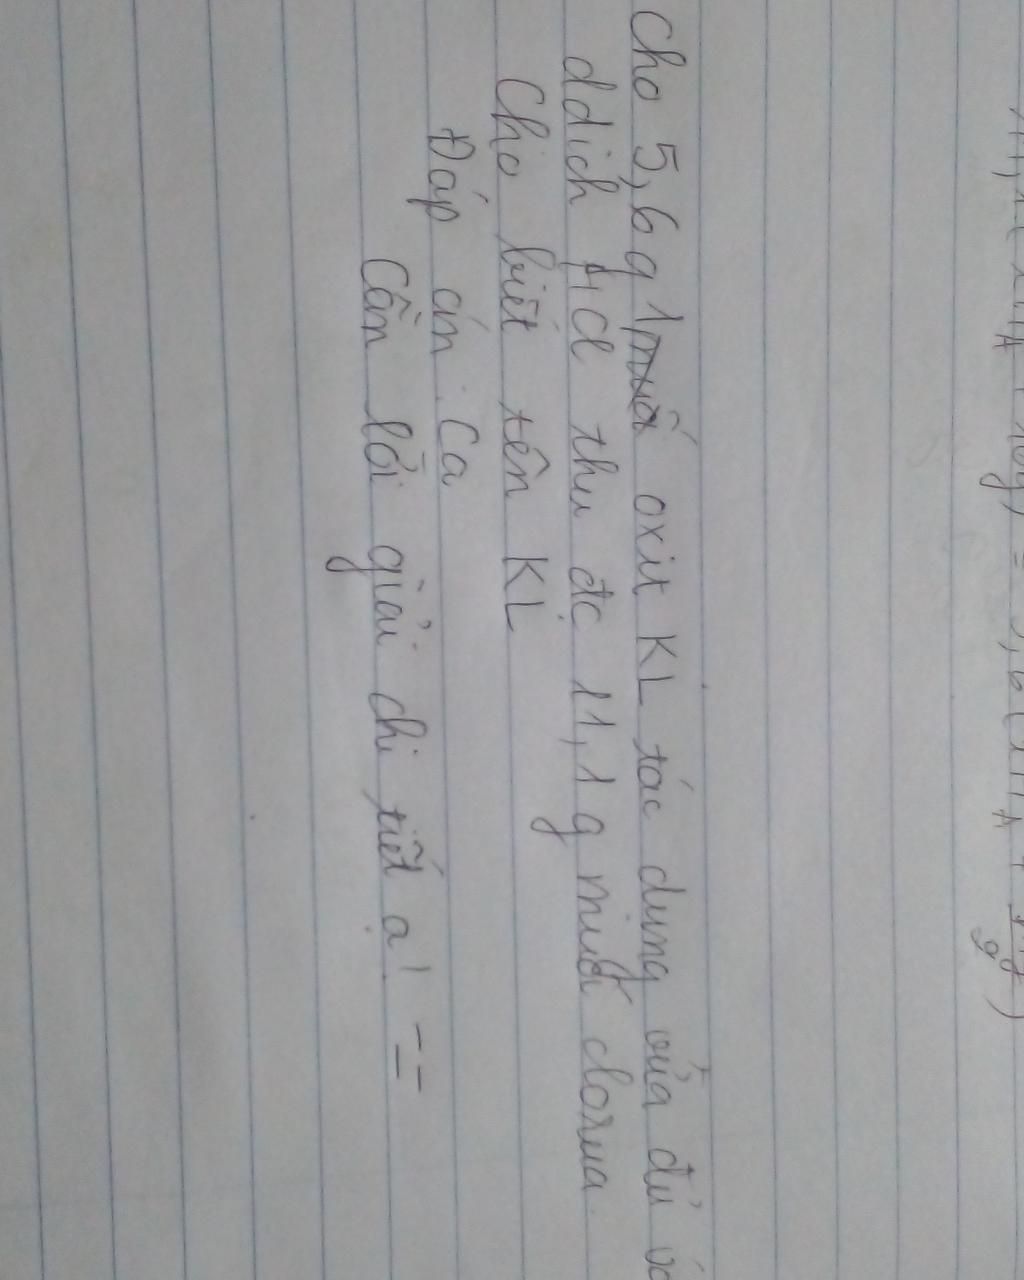 Cho 5,6 g 1 muối oxit KL tác dụng vừa đủ
ddịch HCl thu đc 11,1 g muối clorua
Cho biết tên KL
Đáp án : Ca
Cần lời giải chi tiết ạ! --